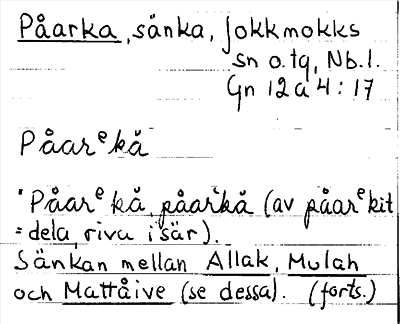 Påarka, sänka, Jokkmokks
sn o. tg, Nb. l.
Gn 12 a 4 : 17
Påarᵉkå
"Påarᵉkå, påarkå (av påarᵉkit
= dela, riva isär).
Sänkan mellan Allak, Mulah
och Mattåive (se dessa). (forts.)